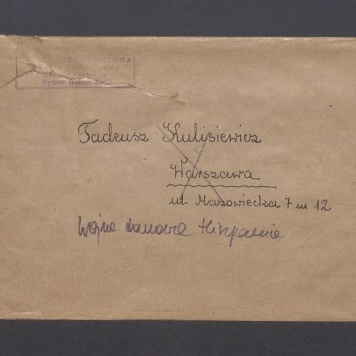 Tadeusz Kulisiewicz
Warszawa
ul. Mazowiecka 7 m 12
Wojna domowa Hiszpania